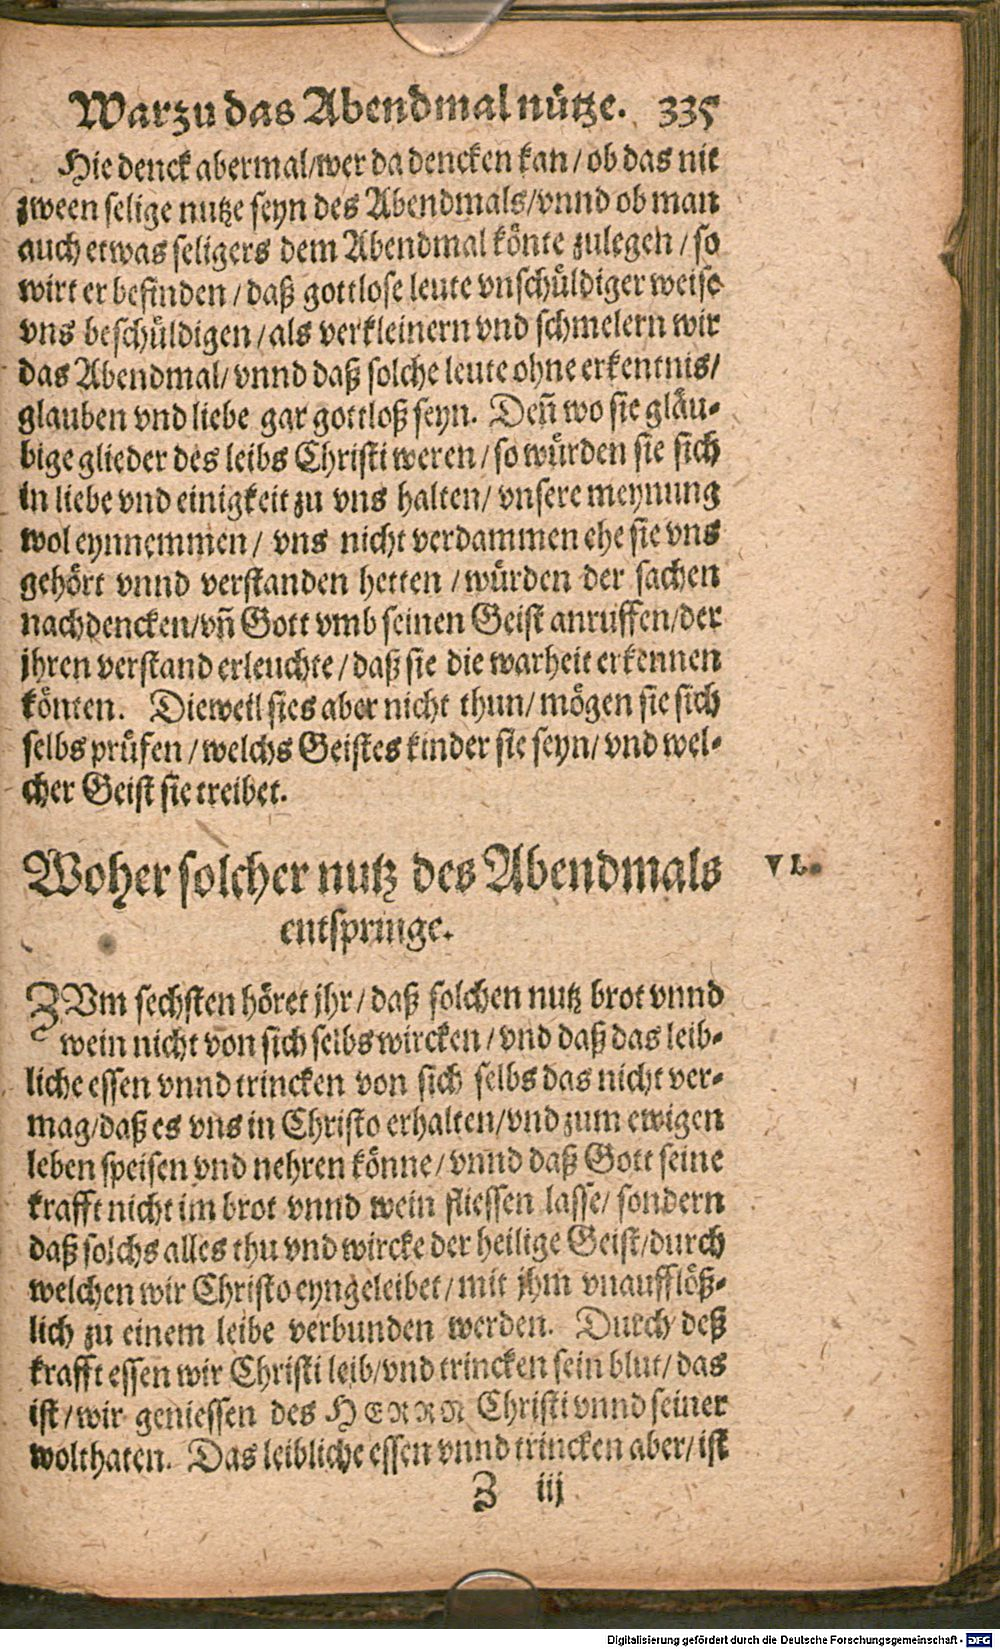 Warzu das Abendmal nütze. 335
Hie denck abermal/wer da dencken kan/ob das nit
zween selige nutze seyn des Abendmals/vnnd ob man
auch etwas seligers dem Abendmal könte zulegen/so
wirt er befinden/daß gottlose leute vnschüldiger weise
vns beschüldigen/als verkleinern vnd schmelern wir
das Abendmal/vnnd daß solche leute ohne erkentnis/
glauben vnd liebe gar gottloß seyn. Deñ wo sie gläu-
bige glieder des leibs Christi weren/so würden sie sich
in liebe vnd einigkeit zu vns halten/vnsere meynung
wol eynnemmen/vns nicht verdammen ehe sie vns
gehört vnnd verstanden hetten/würden der sachen
nachdencken/vñ Gott vmb seinen Geist anruffen/der
jhren verstand erleuchte/daß sie die warheit erkennen
könten. Dieweil sies aber nicht thun/mögen sie sich
selbs prüfen/welchs Geistes kinder sie seyn/vnd wel-
cher Geist sie treibet.
Woher solcher nutz des Abendmals VI.
entspringe.
ZVm sechsten höret jhr/daß solchen nutz brot vnnd
wein nicht von sich selbs wircken/vnd daß das leib-
liche essen vnnd trincken von sich selbs das nicht ver-
mag/daß es vns in Christo erhalten/vnd zum ewigen
leben speisen vnd nehren könne/vnnd daß Gott seine
krafft nicht im brot vnnd wein fliessen lasse/sondern
daß solchs alles thu vnd wircke der heilige Geist/durch
welchen wir Christo eyngeleibet/mit jhm vnaufflöß-
lich zu einem leibe verbunden werden. Durch deß
krafft essen wir Christi leib/vnd trincken sein blut/das
ist/wir geniessen des HERRN Christi vnnd seiner
wolthaten. Das leibliche essen vnnd trincken aber/ist
Z iij
Digitalisierung gefördert durch die Deutsche Forschungsgemeinschaft - DFG